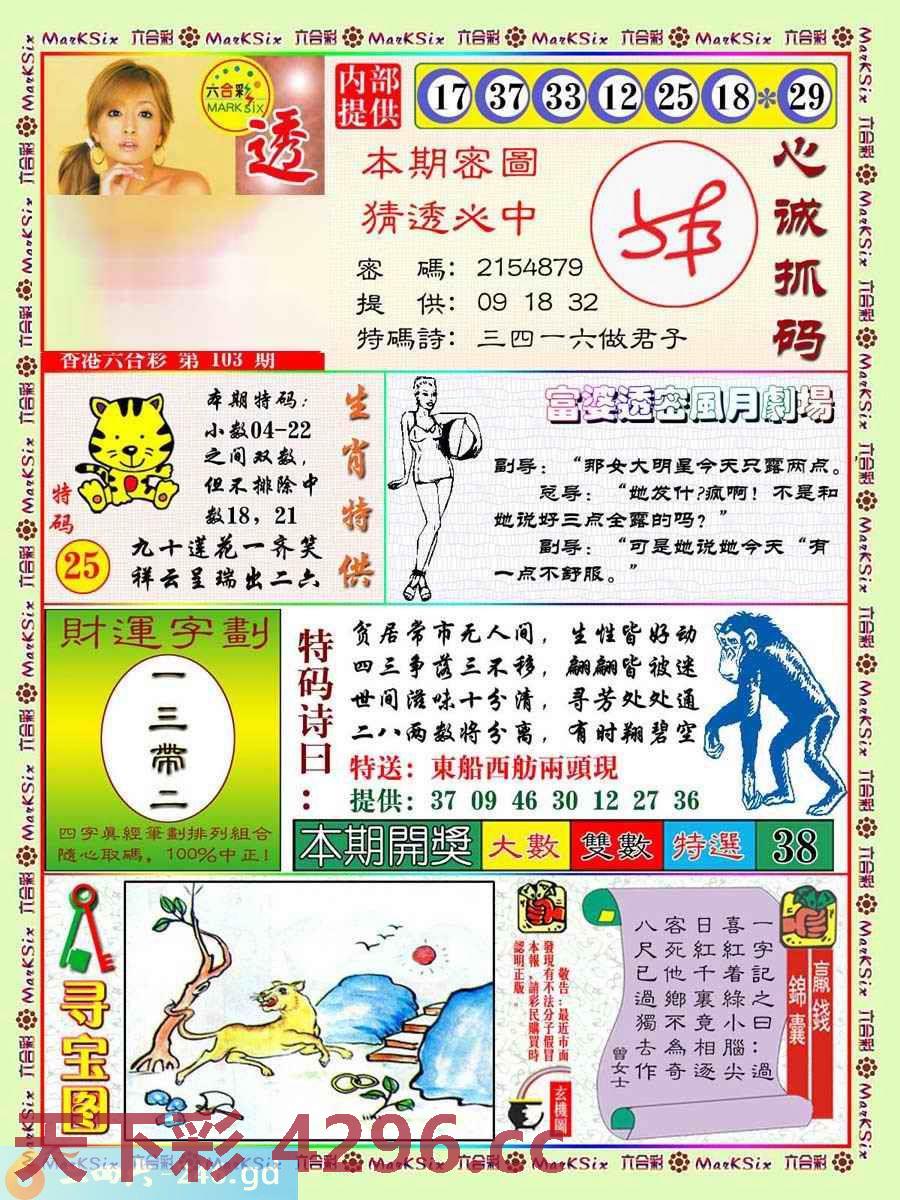 MarKSix 六合彩 MarKSix 六合彩 MarKSix 六合彩 MarKSix 六合彩 MarKSix 六合彩
六合彩
MARK SIX
透
内部
提供
17 37 33 12 25 18*29
本期密圖
猜透必中
密 碼：2154879
提 供：09 18 32
特碼詩：三四一六做君子
心诚抓码
香港六合彩 第 103 期
本期特码：
小数04-22
之间双数，
但不排除中
数18，21
九十莲花一齐笑
祥云呈瑞出二六
特码
25
生肖特供
富婆透密風月劇場
副导：“那女大明星今天只露两点。”
总导：“她发什?疯啊！不是和
她说好三点全露的吗？”
副导：“可是她说她今天“有
一点不舒服。”
財運字劃
一三帶二
四字真經筆劃排列組合
隨心取碼，100%中正！
特码诗曰：
贫居常市无人间，生性皆好动
四三争落三不移，翩翩皆被迷
世间滋味十分清，寻芳处处通
二八两数将分离，有时翔碧空
特送：東船西舫兩頭現
提供：37 09 46 30 12 27 36
本期開獎 大數 雙數 特選 38
寻宝图
敬告：最近市面
發現有不法分子假冒
本報，請彩民購買時
認明正版。
玄機圖
一字記之曰：過
喜紅着綠小腦尖
日紅千裏竟相逐
客死他鄉不為奇
八尺已過獨去作
曾女士
贏錢
錦囊
天下彩 4296.cc
246.gd
MarKSix 六合彩 MarKSix 六合彩 MarKSix 六合彩 MarKSix 六合彩